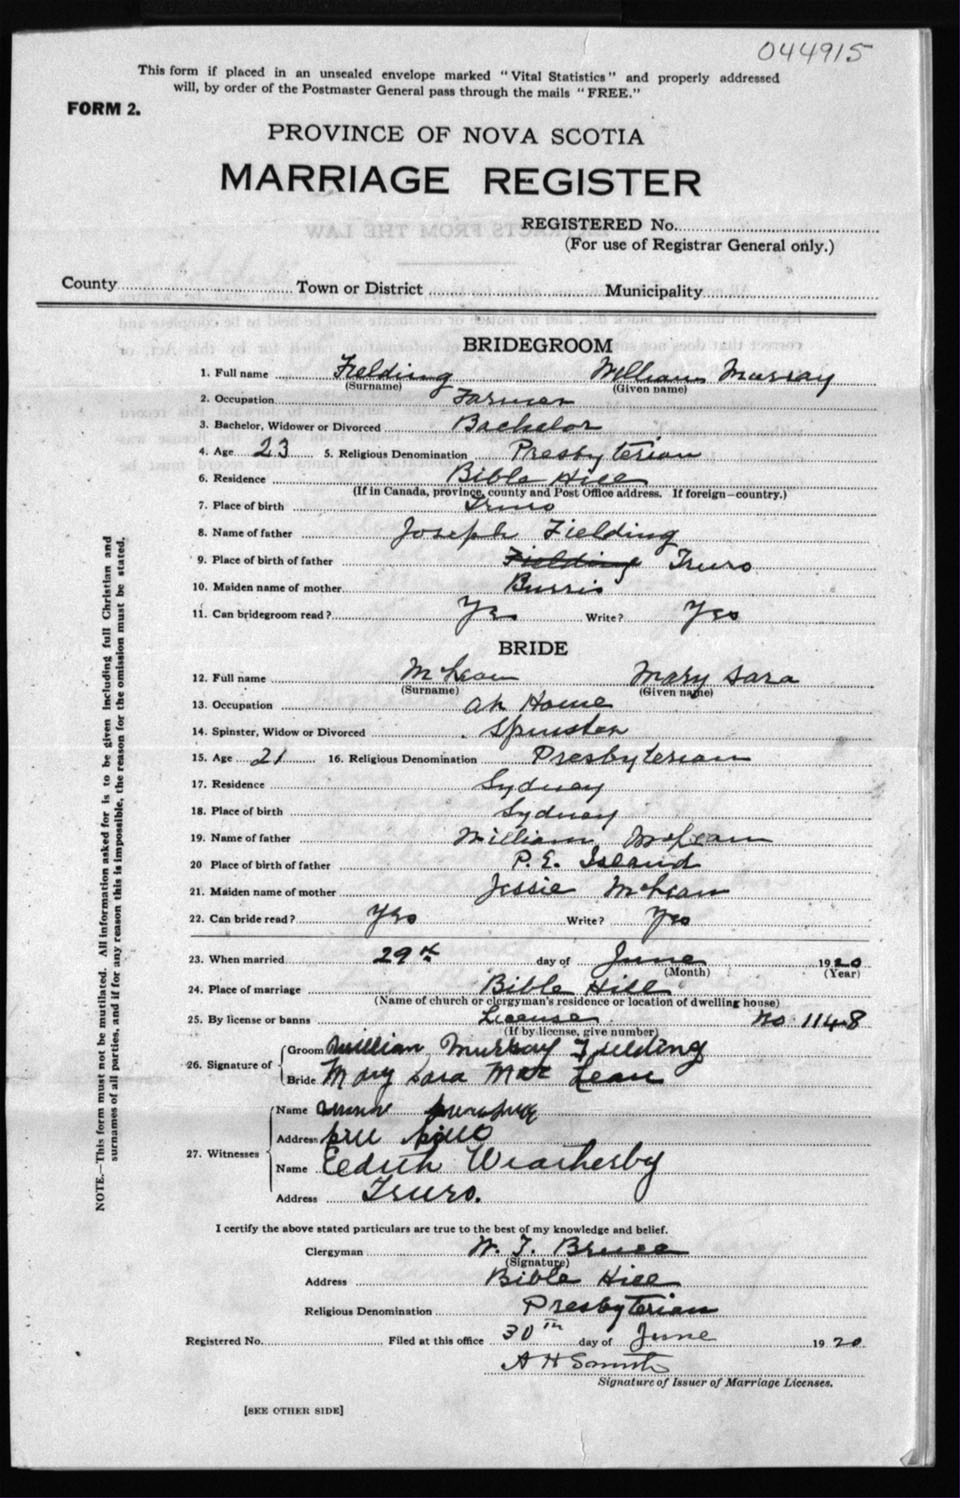 044915
This form if placed in an unsealed envelope marked "Vital Statistics" and properly addressed
will, by order of the Postmaster General pass through the mails "FREE."
FORM 2.
PROVINCE OF NOVA SCOTIA
MARRIAGE REGISTER
REGISTERED No.
(For use of Registrar General only.)
County Town or District Municipality
BRIDEGROOM
1. Full name Fielding William Murray
(Surname) (Given name)
2. Occupation Farmer
3. Bachelor, Widower or Divorced Bachelor
4. Age 23 5. Religious Denomination Presbyterian
6. Residence Bible Hill
(If in Canada, province, county and Post Office address. If foreign—country.)
7. Place of birth Truro
8. Name of father Joseph Fielding
9. Place of birth of father Fielding Truro
10. Maiden name of mother Burris
11. Can bridegroom read? Yes Write? Yes
BRIDE
12. Full name McLean Mary Sara
(Surname) (Given name)
13. Occupation At Home
14. Spinster, Widow or Divorced Spinster
15. Age 21 16. Religious Denomination Presbyterian
17. Residence Sydney
18. Place of birth Sydney
19. Name of father William McLean
20 Place of birth of father P. E. Island
21. Maiden name of mother Jessie McLean
22. Can bride read? Yes Write? Yes
23. When married 29th day of June 1920
(Month) (Year)
24. Place of marriage Bible Hill
(Name of church or clergyman's residence or location of dwelling house)
25. By license or banns License No 1148
(If by license, give number)
26. Signature of Groom William Murray Fielding
Bride Mary Sara MacLean
27. Witnesses
Name
Address
Name Edith Weatherby
Address Truro.
I certify the above stated particulars are true to the best of my knowledge and belief.
Clergyman W. T. Bruce
(Signature)
Address Bible Hill
Religious Denomination Presbyterian
Registered No. Filed at this office 30th day of June 1920
A H Smith
Signature of Issuer of Marriage Licenses.
[SEE OTHER SIDE]
NOTE.—This form must not be mutilated. All information asked for is to be given including full Christian and
surnames of all parties, and if for any reason this is impossible, the reason for the omission must be stated.